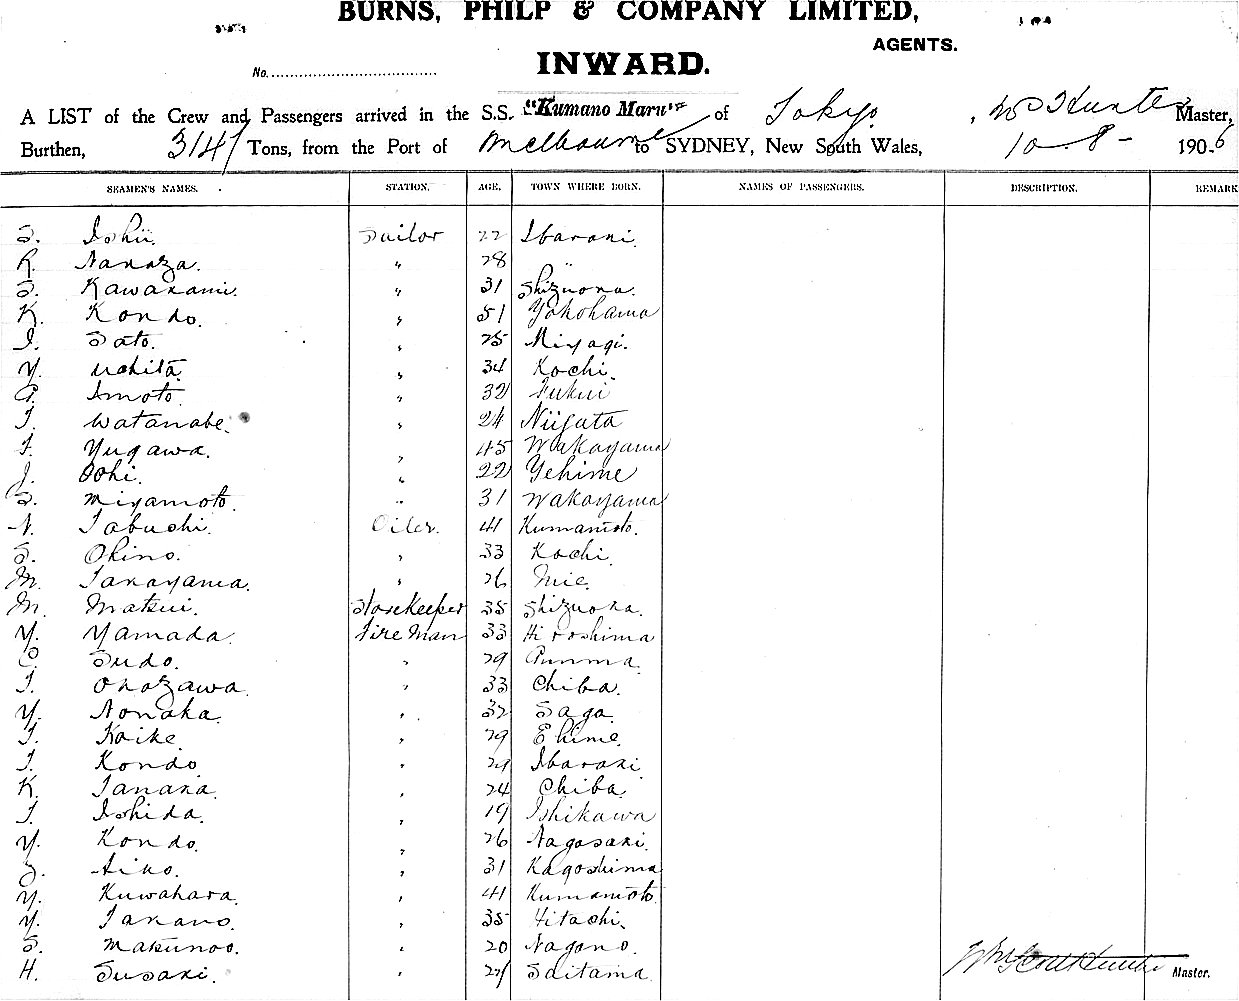 BURNS, PHILP & COMPANY LIMITED,
AGENTS.
No.
INWARD.
A LIST of the Crew and Passengers arrived in the S.S. "Kumano Maru" of Tokyo, Hunter Master,
Burthen, 3141 Tons, from the Port of Melbourne to SYDNEY, New South Wales, 10-8- 1906
SEAMEN'S NAMES. STATION. AGE. TOWN WHERE BORN. NAMES OF PASSENGERS. DESCRIPTION. REMARK
S. Ishii. Sailor 22 Ibaraki.
R. Nakaza. " 28 "
S. Kawakami. " 31 Shizuoka.
K. Kondo. " 51 Yokohama
I. Sato. " 25 Miyagi.
Y. Uchita. " 34 Kochi.
G. Imoto. " 32 Fukui
T. Watanabe. " 24 Niigata
T. Yugawa. " 45 Wakayama
J. Oohi. " 22 Yehime
S. Miyamoto. " 31 Wakayama
N. Tabuchi. Oiler. 41 Kumamoto.
S. Okino. " 33 Kochi.
M. Takayama. " 26 Mie.
M. Matsui. Storekeeper 35 Shizuoka.
Y. Yamada. Fire Man 33 Hiroshima
C. Sudo. " 29 Gunma.
T. Okazawa. " 33 Chiba.
Y. Nonaka. " 32 Saga.
T. Koike. " 29 Ehime.
T. Kondo. " 29 Ibaraki
K. Tanaka. " 24 Chiba.
T. Ishida. " 19 Ishikawa
Y. Kondo. " 26 Nagasaki.
" 31 Kagoshima
Y. Kuwahara. " 41 Kumamoto.
Y. Takano. " 35 Hitachi.
S. Makunoo. " 20 Nagano.
H. Susaki. " 24 Saitama.
Hunter Master.